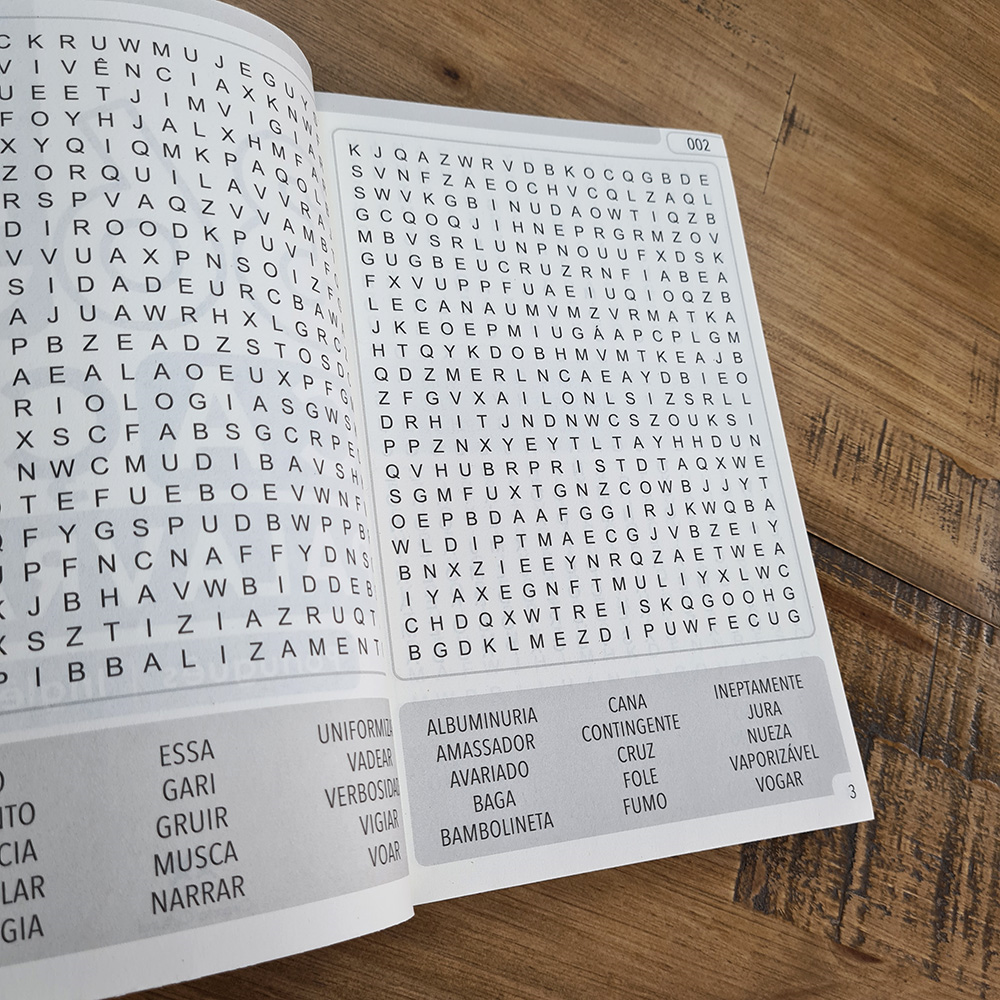 CKRUWMUJEGUY
VIVÊNCIAXKNW
UEETJIMVIGI
FOYHJALXHMF
XYQIQMKPAQO
ZORQUILAVVR
RSPVAQZVVAM
DIROODKPUVI
VVUAXPNSOIZ
SIDADEURCBA
AJUAWRHXLGR
PBZEADZSTOS
AEALAOEUXPF
RIOLOGIASGW
XSCFABSGCRP
NWCMUDIBAVS
TEFUEBOEVWN
FYGSPUDBWPPB
PFNCNAFFYDNS
JBHAVWBIDDEB
SZTIZIAZRUQT
PIBBALIZAMENT
ESSA
GARI
GRUIR
MUSCA
NARRAR
VADEAR
VIGIAR
VOAR
002
KJQAZWRVDBKOCQGBDE
SVNFZAEOCHVCQLZAQL
SWVKGBINUDAOWTIQZB
GCQOQJIHNEPRGRMZOV
MBVSRLUNPNOUUFXDSK
GUGBEUCRUZRNFIABEA
FXVUPPFUAEIUQIOQZB
LECANAUMVMZVRMATKA
JKEOEPMIUGÁAPCPLGM
HTQYKDOBHMVMTKEAJB
QDZMERLNCAEAYDBIEO
ZFGVXAILONLSIZSRLL
DRHITJNDNWCSZOUKSI
PPZNXYEYTLTAYHHDUN
QVHUBRPRISTDTAQXWE
SGMFUXTGNZCOWBJJYT
OEPBDAAFGGIRJKWQBA
WLDIPTMAECGJVBZEIY
BNXZIEEYNRQZAETWEA
IYAXEGNFTMULIYXLWC
CHDQXWTREISKQGOOHG
BGDKLMEZDIPUWFECUG
ALBUMINURIA
AMASSADOR
AVARIADO
BAGA
BAMBOLINETA
CANA
CONTINGENTE
CRUZ
FOLE
FUMO
INEPTAMENTE
JURA
NUEZA
VAPORIZÁVEL
VOGAR
3